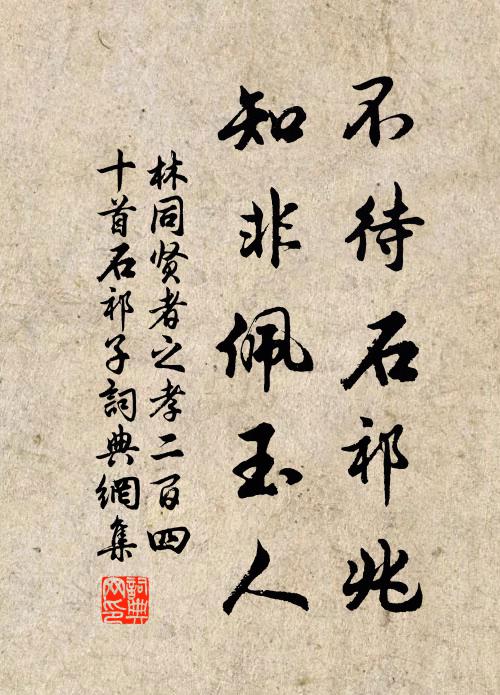 不待石祁兆
知非佩玉人
林同贤者之孝二百四
十首石祁子詞典網集
詞典網印